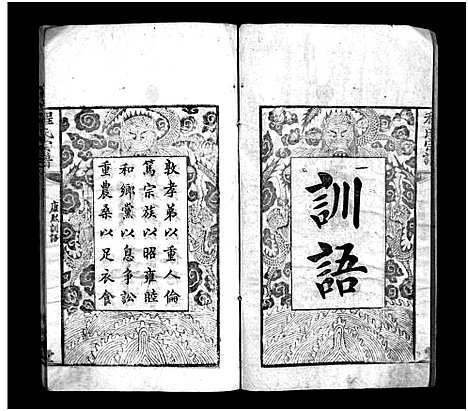 訓語
敦孝弟以重人倫
篤宗族以昭雍睦
和鄉黨以息爭訟
重農桑以足衣食
程氏宗譜